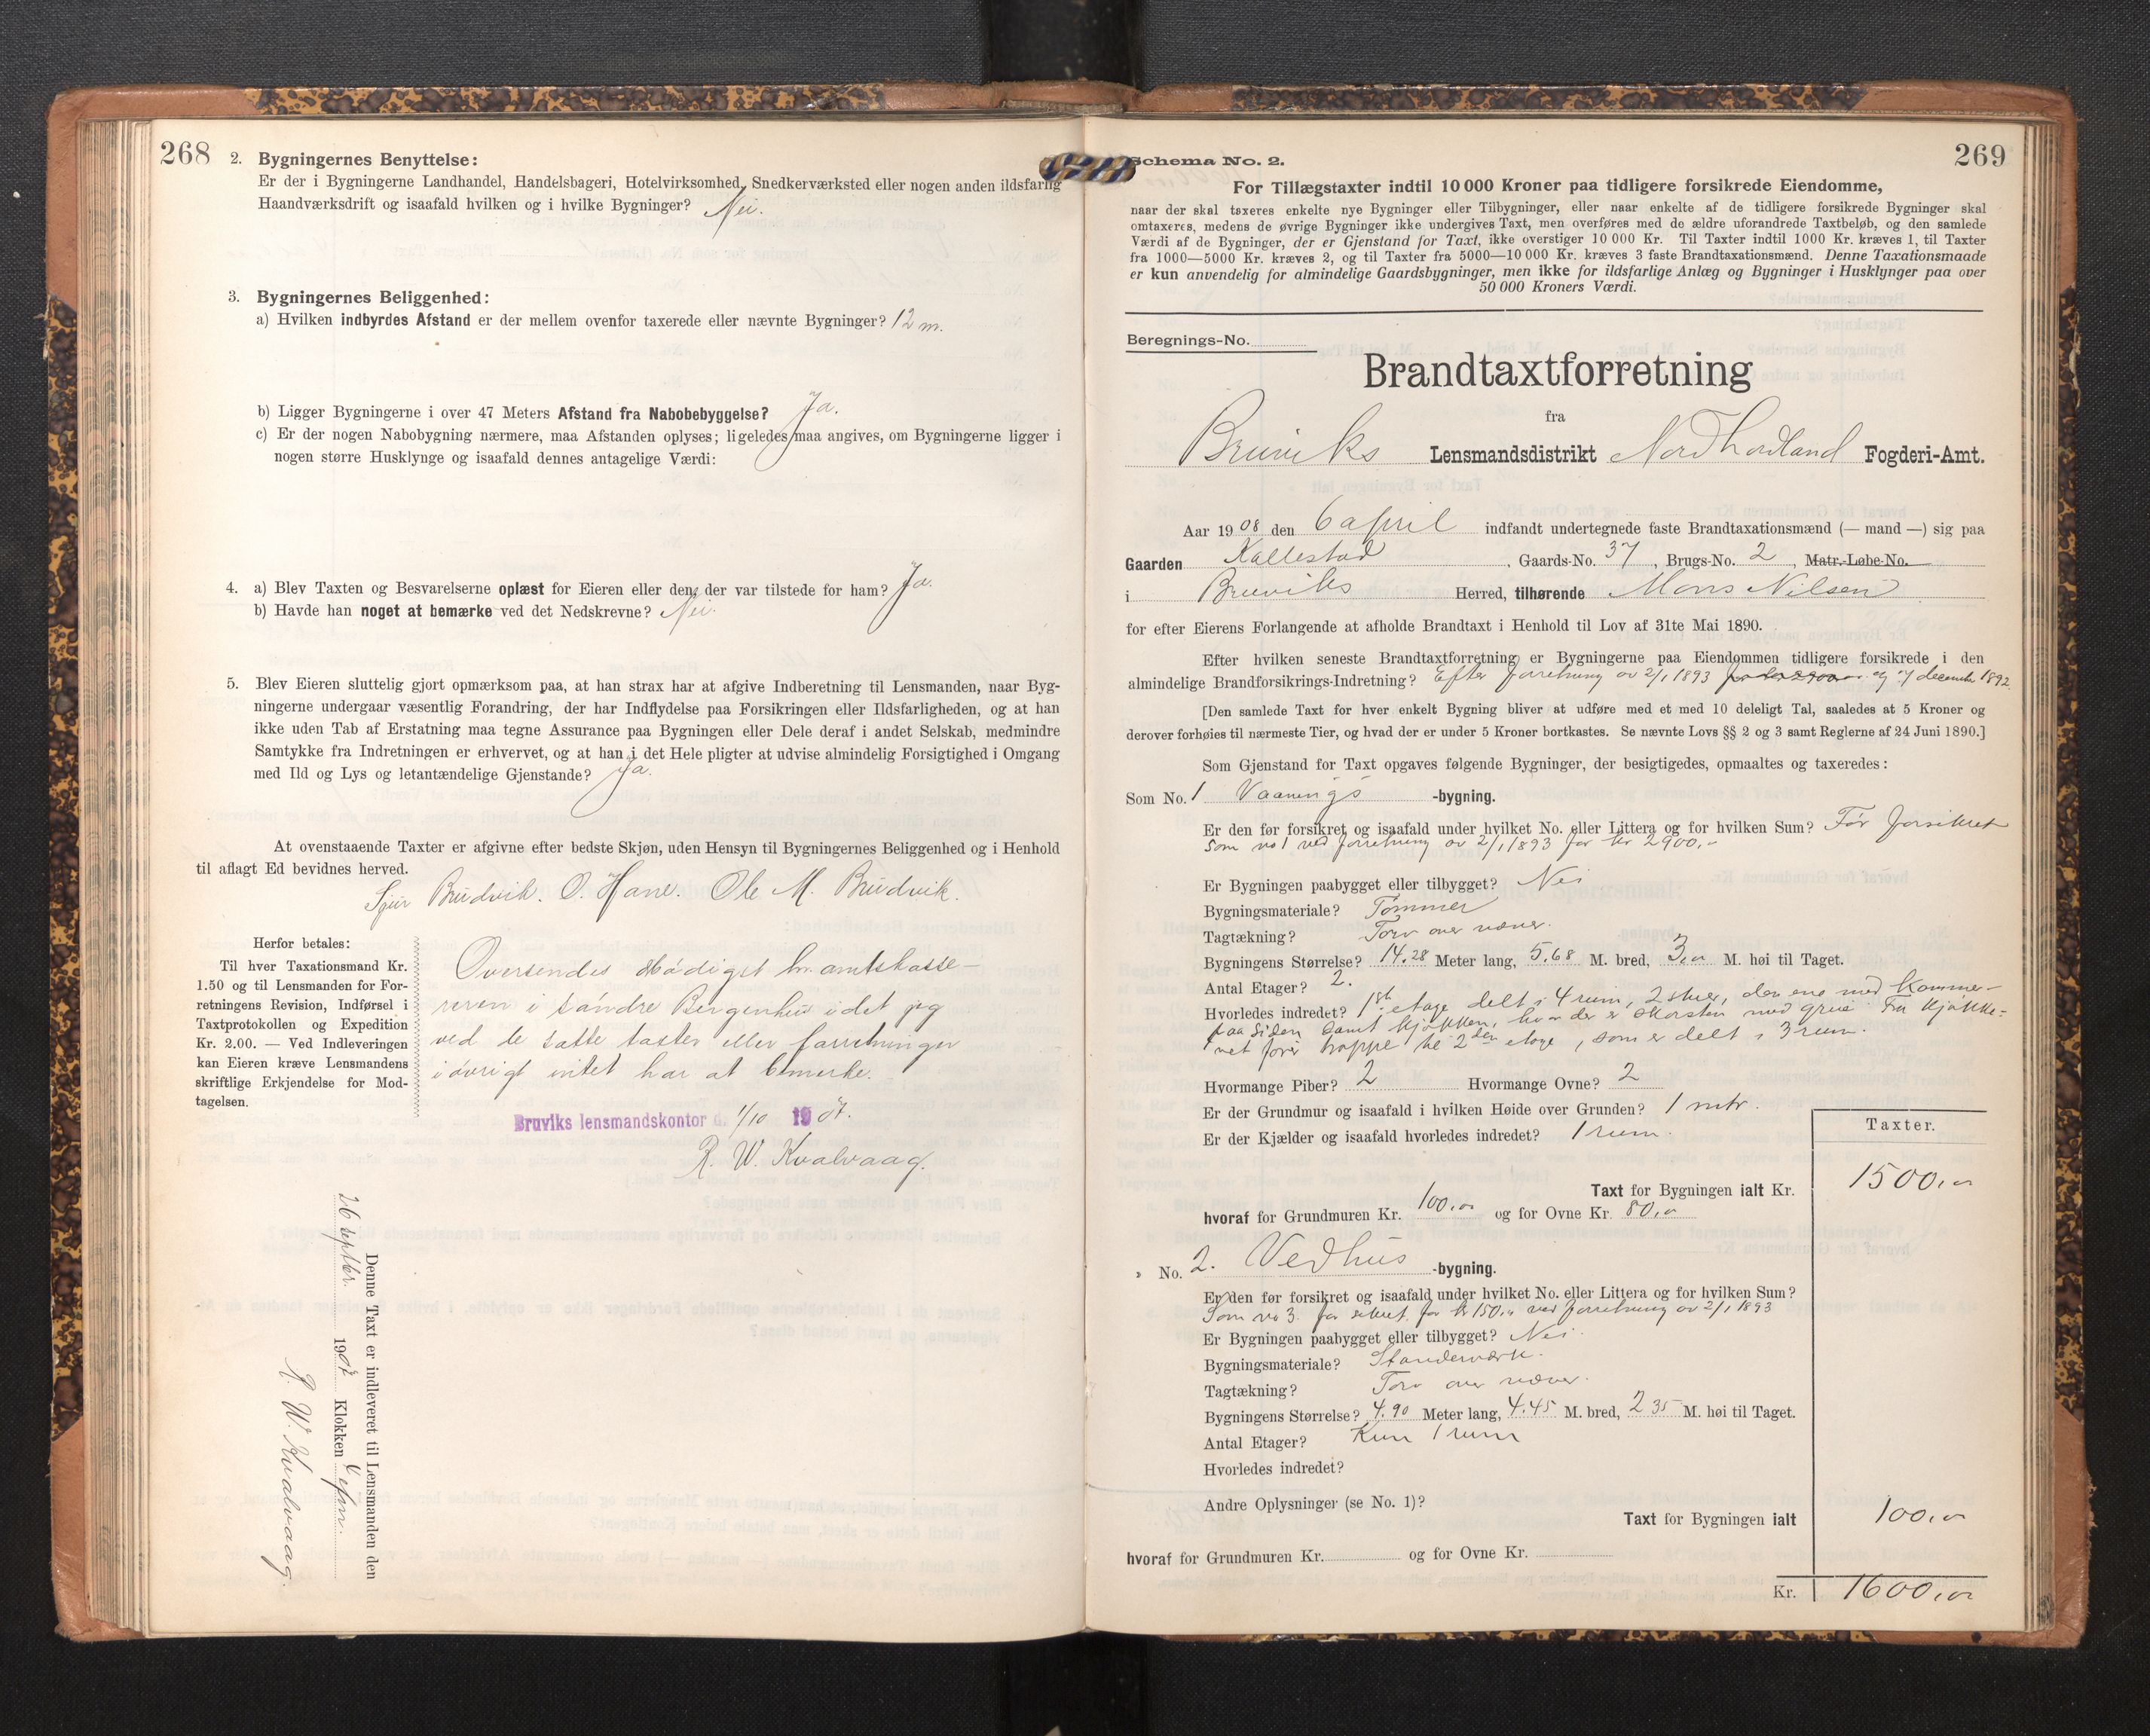 268
2. Bygningernes Benyttelse:
Er der i Bygningerne Landhandel, Handelsbageri, Hotelvirksomhed, Snedkerværksted eller nogen anden ildsfarlig
Haandværksdrift og isaafald hvilken og i hvilke Bygninger? Nei.
3. Bygningernes Beliggenhed:
a) Hvilken indbyrdes Afstand er der mellem ovenfor taxerede eller nævnte Bygninger? 12 m.
b) Ligger Bygningerne i over 47 Meters Afstand fra Nabobebyggelse? Ja.
c) Er der nogen Nabobygning nærmere, maa Afstanden oplyses; ligeledes maa angives, om Bygningerne ligger i
nogen større Husklynge og isaafald dennes antagelige Værdi:
4. a) Blev Taxten og Besvarelserne oplæst for Eieren eller den, der var tilstede for ham? Ja.
b) Havde han noget at bemærke ved det Nedskrevne? Nei.
5. Blev Eieren sluttelig gjort opmærksom paa, at han strax har at afgive Indberetning til Lensmanden, naar Byg-
ningerne undergaar væsentlig Forandring, der har Indflydelse paa Forsikringen eller Ildsfarligheden, og at han
ikke uden Tab af Erstatning maa tegne Assurance paa Bygningen eller Dele deraf i andet Selskab, medmindre
Samtykke fra Indretningen er erhvervet, og at han i det Hele pligter at udvise almindelig Forsigtighed i Omgang
med Ild og Lys og letantændelige Gjenstande? Ja.
At ovenstaaende Taxter er afgivne efter bedste Skjøn, uden Hensyn til Bygningernes Beliggenhed og i Henhold
til aflagt Ed bevidnes herved.
Brudvik. O. Hane. Ole M. Brudvik.
Herfor betales:
Til hver Taxationsmand Kr.
1.50 og til Lensmanden for For-
retningens Revision, Indførsel i
Taxtprotokollen og Expedition
Kr. 2.00. — Ved Indleveringen
kan Eieren kræve Lensmandens
skriftlige Erkjendelse for Mod-
tagelsen.
Oversendes hr. amtskasse-
reren i søndre Bergenhus idet jeg
ved de satte taxter eller forretninger
i øvrigt intet har at bemerke.
Bruviks lensmandskontor d. 1/10 1907.
R. W. Kvalvaag.
Denne Taxt er indleveret til Lensmanden den
26 septbr. 1907 Klokken efm.
R. W. Kvalvaag.
269
Schema No. 2.
For Tillægstaxter indtil 10 000 Kroner paa tidligere forsikrede Eiendomme,
naar der skal taxeres enkelte nye Bygninger eller Tilbygninger, eller naar enkelte af de tidligere forsikrede Bygninger skal
omtaxeres, medens de øvrige Bygninger ikke undergives Taxt, men overføres med de ældre uforandrede Taxtbeløb, og den samlede
Værdi af de Bygninger, der er Gjenstand for Taxt, ikke overstiger 10 000 Kr. Til Taxter indtil 1000 Kr. kræves 1, til Taxter
fra 1000—5000 Kr. kræves 2, og til Taxter fra 5000—10 000 Kr. kræves 3 faste Brandtaxationsmænd. Denne Taxationsmaade
er kun anvendelig for almindelige Gaardsbygninger, men ikke for ildsfarlige Anlæg og Bygninger i Husklynger paa over
50 000 Kroners Værdi.
Beregnings-No.
Brandtaxtforretning
fra
Bruviks Lensmandsdistrikt Nordhordland Fogderi-Amt.
Aar 1908 den 6 april indfandt undertegnede faste Brandtaxationsmænd (— mand —) sig paa
Gaarden Kallestad, Gaards-No. 37, Brugs-No. 2, Matr.-Løbe-No.
i Bruviks Herred, tilhørende Mons Nilsen
for efter Eierens Forlangende at afholde Brandtaxt i Henhold til Lov af 31te Mai 1890.
Efter hvilken seneste Brandtaxtforretning er Bygningerne paa Eiendommen tidligere forsikrede i den
almindelige Brandforsikrings-Indretning? Efter forretning av 2/1 1893 og 7 decembr 1892
[Den samlede Taxt for hver enkelt Bygning bliver at udføre med et med 10 deleligt Tal, saaledes at 5 Kroner og
derover forhøies til nærmeste Tier, og hvad der er under 5 Kroner bortkastes. Se nævnte Lovs §§ 2 og 3 samt Reglerne af 24 Juni 1890.]
Som Gjenstand for Taxt opgaves følgende Bygninger, der besigtigedes, opmaaltes og taxeredes:
Som No. 1 Vaanings -bygning.
Er den før forsikret og isaafald under hvilket No. eller Littera og for hvilken Sum? Før forsikret
som no 1 ved forretning av 2/1 1893 for kr 2900,-
Er Bygningen paabygget eller tilbygget? Nei
Bygningsmateriale? Tømmer
Tagtækning? Torv over næver.
Bygningens Størrelse? 14.28 Meter lang, 5.68 M. bred, 3,00 M. høi til Taget.
Antal Etager? 2.
Hvorledes indredet? 1ste etage delt i 4 rum, 2 stuer, den ene med Kammer-
paa siden samt kjøkken, hvor der er skorsten med grue. Fra Kjøkke-
net fører trappe til 2den etage, som er delt i 3 rum.
Hvormange Piber? 2 Hvormange Ovne? 2
Er der Grundmur og isaafald i hvilken Høide over Grunden? 1 mtr.
Er der Kjælder og isaafald hvorledes indredet? 1 rum.
Taxter.
Taxt for Bygningen ialt Kr. 1500,00
hvoraf for Grundmuren Kr. 100,00 og for Ovne Kr. 80,00
» No. 2. Vedhus -bygning.
Er den før forsikret og isaafald under hvilket No. eller Littera og for hvilken Sum?
Som no 3 forsikret for kr 150,00 ved forretning av 2/1 1893
Er Bygningen paabygget eller tilbygget? Nei.
Bygningsmateriale? Standerværk.
Tagtækning? Torv over næver.
Bygningens Størrelse? 4.90 Meter lang, 4.45 M. bred, 2 35 M. høi til Taget.
Antal Etager? Kun 1 rum
Hvorledes indredet?
Andre Oplysninger (se No. 1)?
Taxt for Bygningen ialt 100,00
hvoraf for Grundmuren Kr. og for Ovne Kr.
Kr. 1600,00